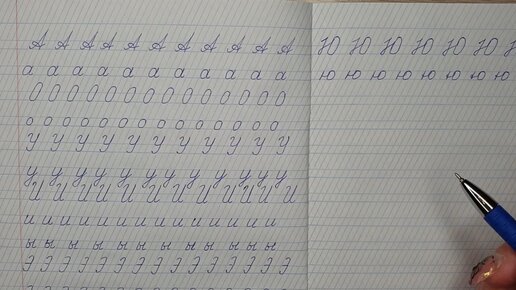 А А А А А А А А А А А
а а а а а а а а а а а
О О О О О О О О О О О О О О
о о о о о о о о о о о о о о
У У У У У У У У У У У
у у у у у у у у у у у у
И И И И И И И И И И И И
и и и и и и и и и и и и и и
ы ы ы ы ы ы ы ы ы ы ы ы
Э Э Э Э Э Э Э Э Э Э Э Э Э Э Э
Ю Ю Ю Ю Ю Ю
ю ю ю ю ю ю ю ю